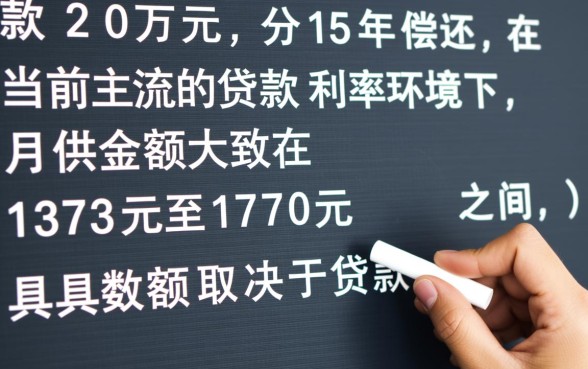 款 20万元, 分15年偿还, 在
当前主流的贷款 利率环境下,
月供金额大致在
1373元至1770元 之间, )
具具数额取决于贷款